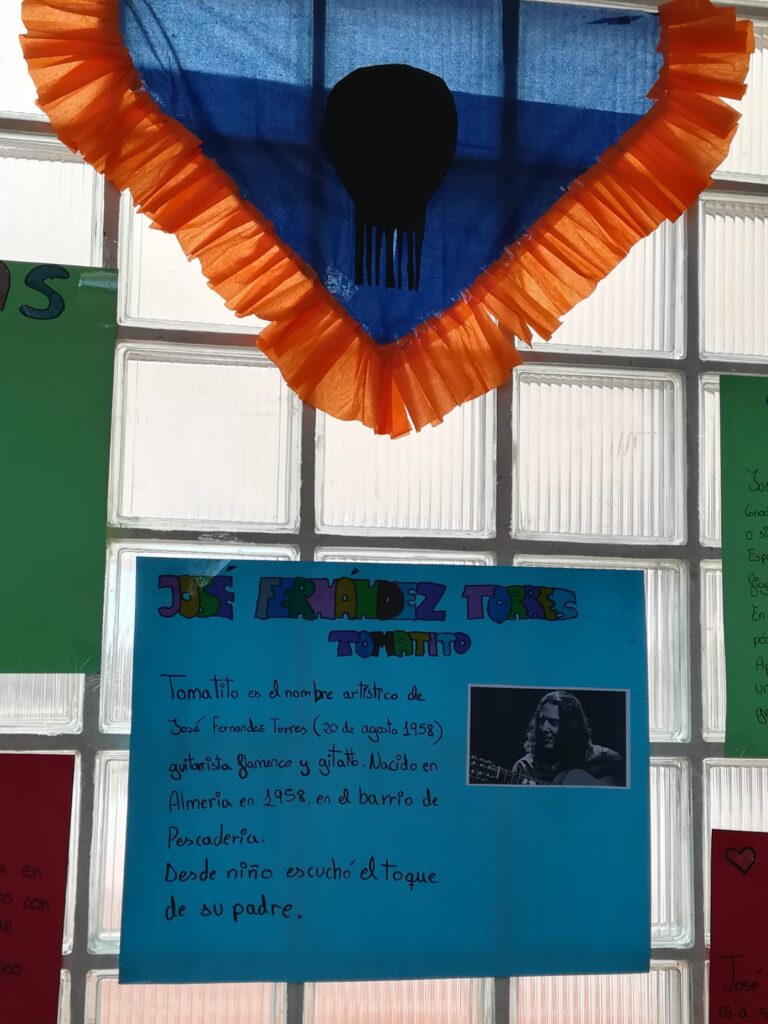 as
JOSÉ FERNÁNDEZ TORRES
TOMATITO
Tomatito es el nombre artístico de
José Fernandez Torres (20 de agosto 1958)
guitarrista flamenco y gitano. Nacido en
Almeria en 1958, en el barrio de
Pescaderia.
Desde niño escuchó el toque
de su padre.
a en
ro con
co
Jos
o si
Espa
En
pós
Ap
un
ge
José
is a s